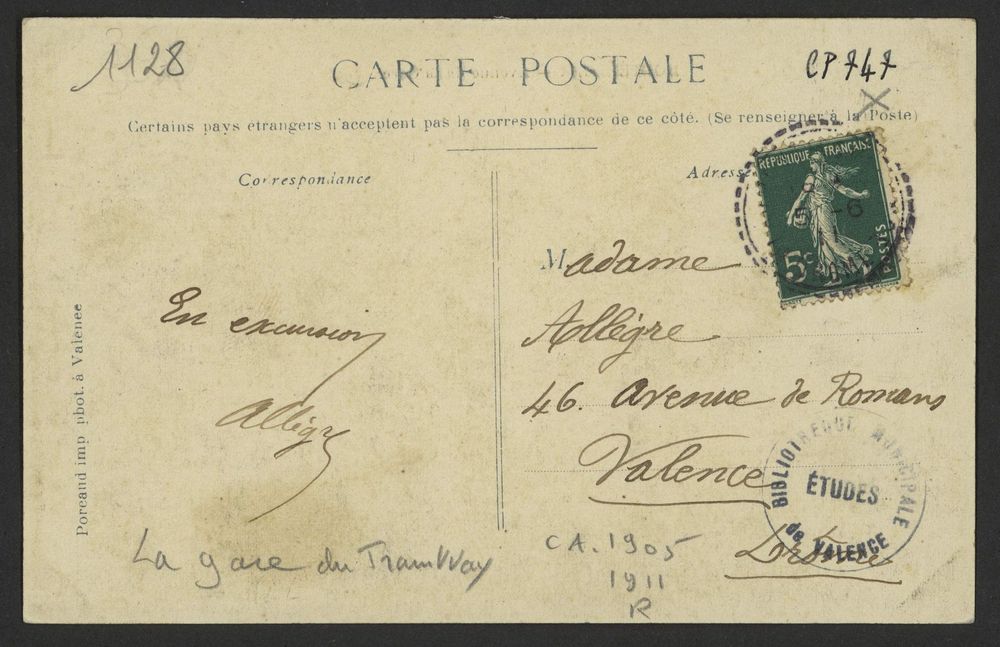 1128
CARTE POSTALE
CP 747
X
Certains pays etrangers n'acceptent pas la correspondance de ce côté. (Se renseigner à la Poste)
Correspondance
Adresse
RÉPUBLIQUE FRANÇAISE
5 -6
5c
POSTES
Madame
Allègre
46. Avenue de Romans
Valence
Drôme
En excursion
Allègre
Poreaud imp phot. à Valence
BIBLIOTHEQUE MUNICIPALE
ÉTUDES
de VALENCE
La gare du TramWay
CA. 1905
1911
R